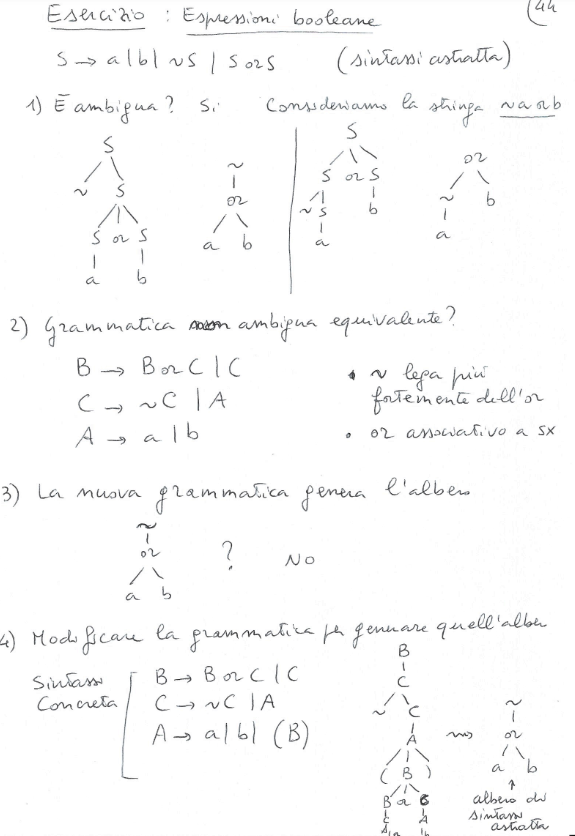 Esercizio : Espressioni booleane
S → a | b | ~S | S or S (sintassi astratta)
1) È ambigua? Sì Consideriamo la stringa ~a or b
S
~ S
S or S
a b
~
or
a b
S
S or S
~ S b
a
or
~ b
a
2) Grammatica non ambigua equivalente?
B → B or C | C
C → ~C | A
A → a | b
• ~ lega più
fortemente dell'or
• or associativo a sx
3) La nuova grammatica genera l'albero
~
or
a b
? NO
4) Modificare la grammatica per generare quell'albero
Sintassi
Concreta
B → B or C | C
C → ~C | A
A → a | b | (B)
B
C
~ C
A
( B )
B or C
C A
~
or
a b
↑
albero di
sintassi
astratta